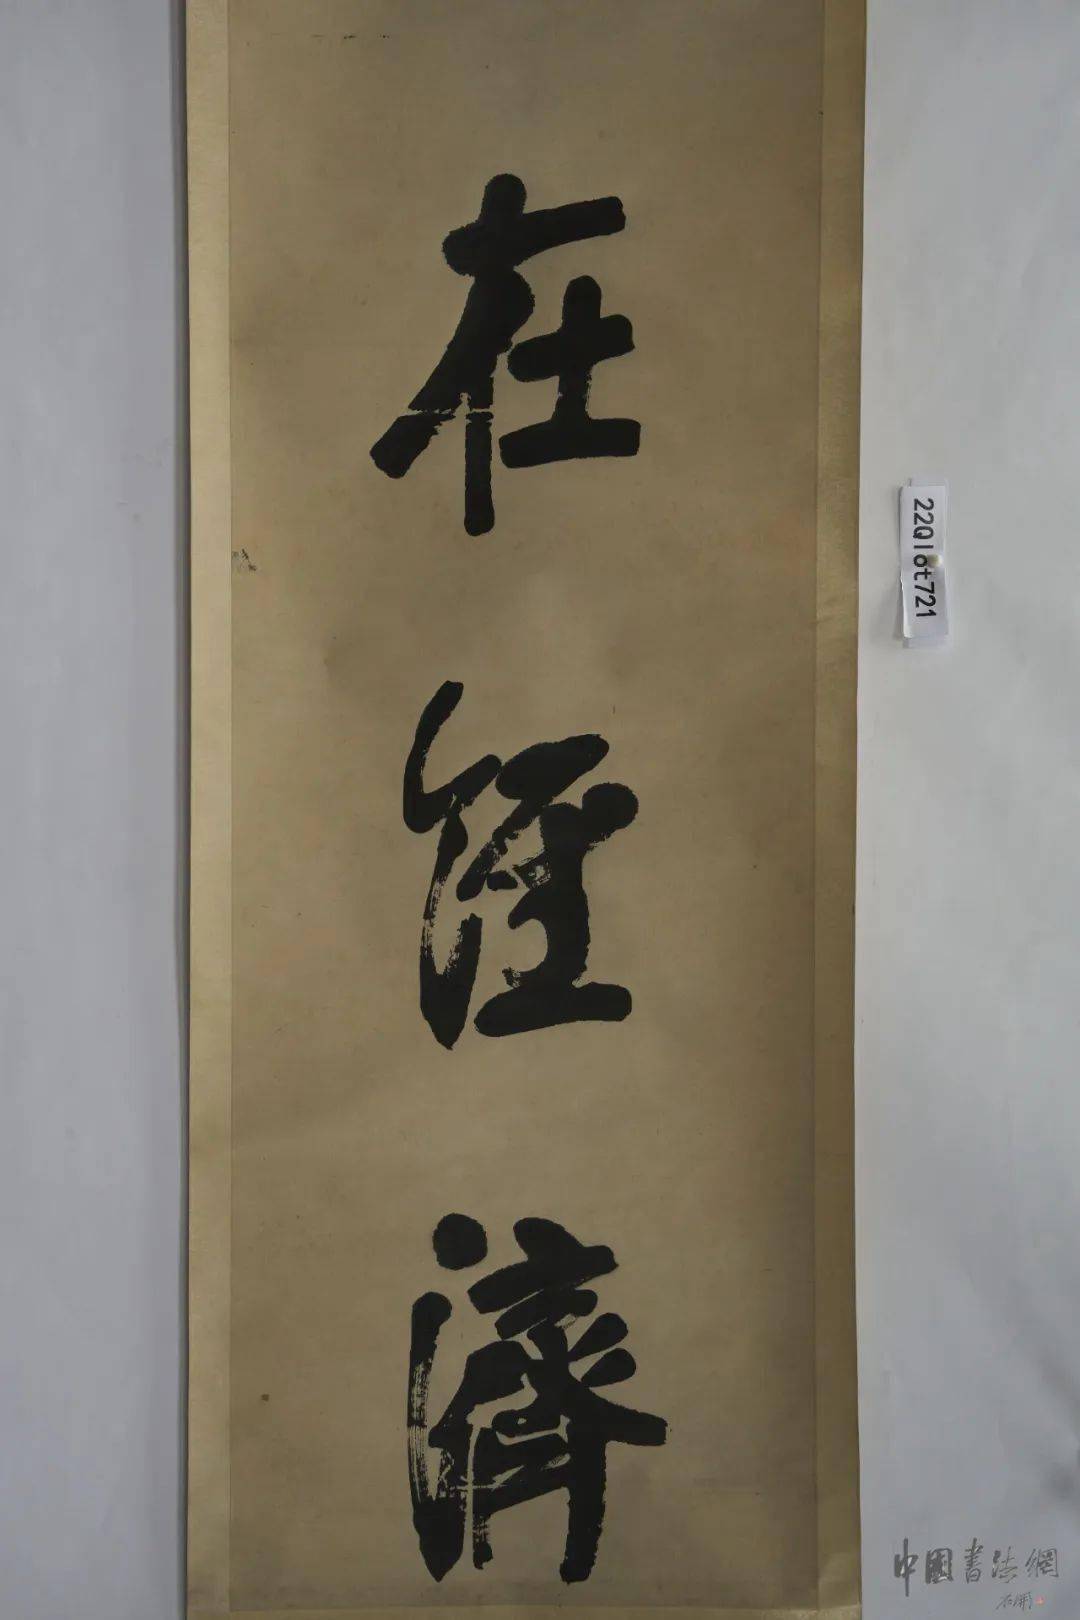 在經濟
22Qlot721
中國書法網